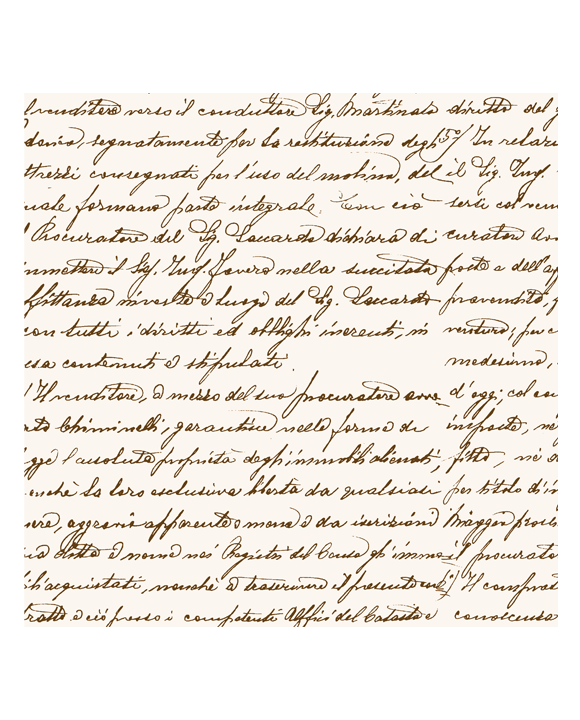 venditore verso il conduttore Sig. Martinato diritto del
danno, segnatamente per la restituzione degli 5°/ In relazi
ttrezzi consegnati per l'uso del molino, del il Sig. Ing.
uale formano parte integrale. Con ciò serti col ven
l Procuratore del Sg. Loccardo dichiara di curatore
mmettere il Sig. Ing. Favero nella succitata poste a dell'a
ffittanza investe luogo del Sig. Loccardo provendita,
con tutti i diritti ed obblighi inerenti, in venture; per
ssa contenuti e stipulati. medesimo,
Il venditore, a mezzo del suo procuratore d'oggi; col
Chiminelli, garantisce nelle forme di imposte, ne
gge l'assoluta proprietà degli immobili alienati, fitto, ne
onchè la loro esclusiva libertà da qualsiasi per titolo di
nere, aggravio apparente o meno e da iscrizioni Maggior
ditta e nome nei Registri del Censo gli immo il procurato
ili acquistati, nonchè a trasferire il presente Il comprat
tratto e ciò presso i competenti Uffici del Catasto e conoscenza